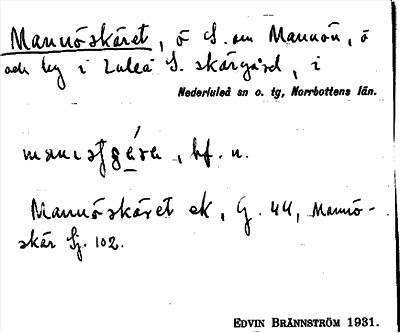 Mannöskäret, ö S. om Mannön, ö
och lzg i Luleå S. skärgård, i
Nederluleå sn o. tg, Norrbottens län.
bf. n.
Mannöskäret ek, G. 44, Mannö-
skär Sj. 102.
EDVIN BRÄNNSTRÖM 1931.